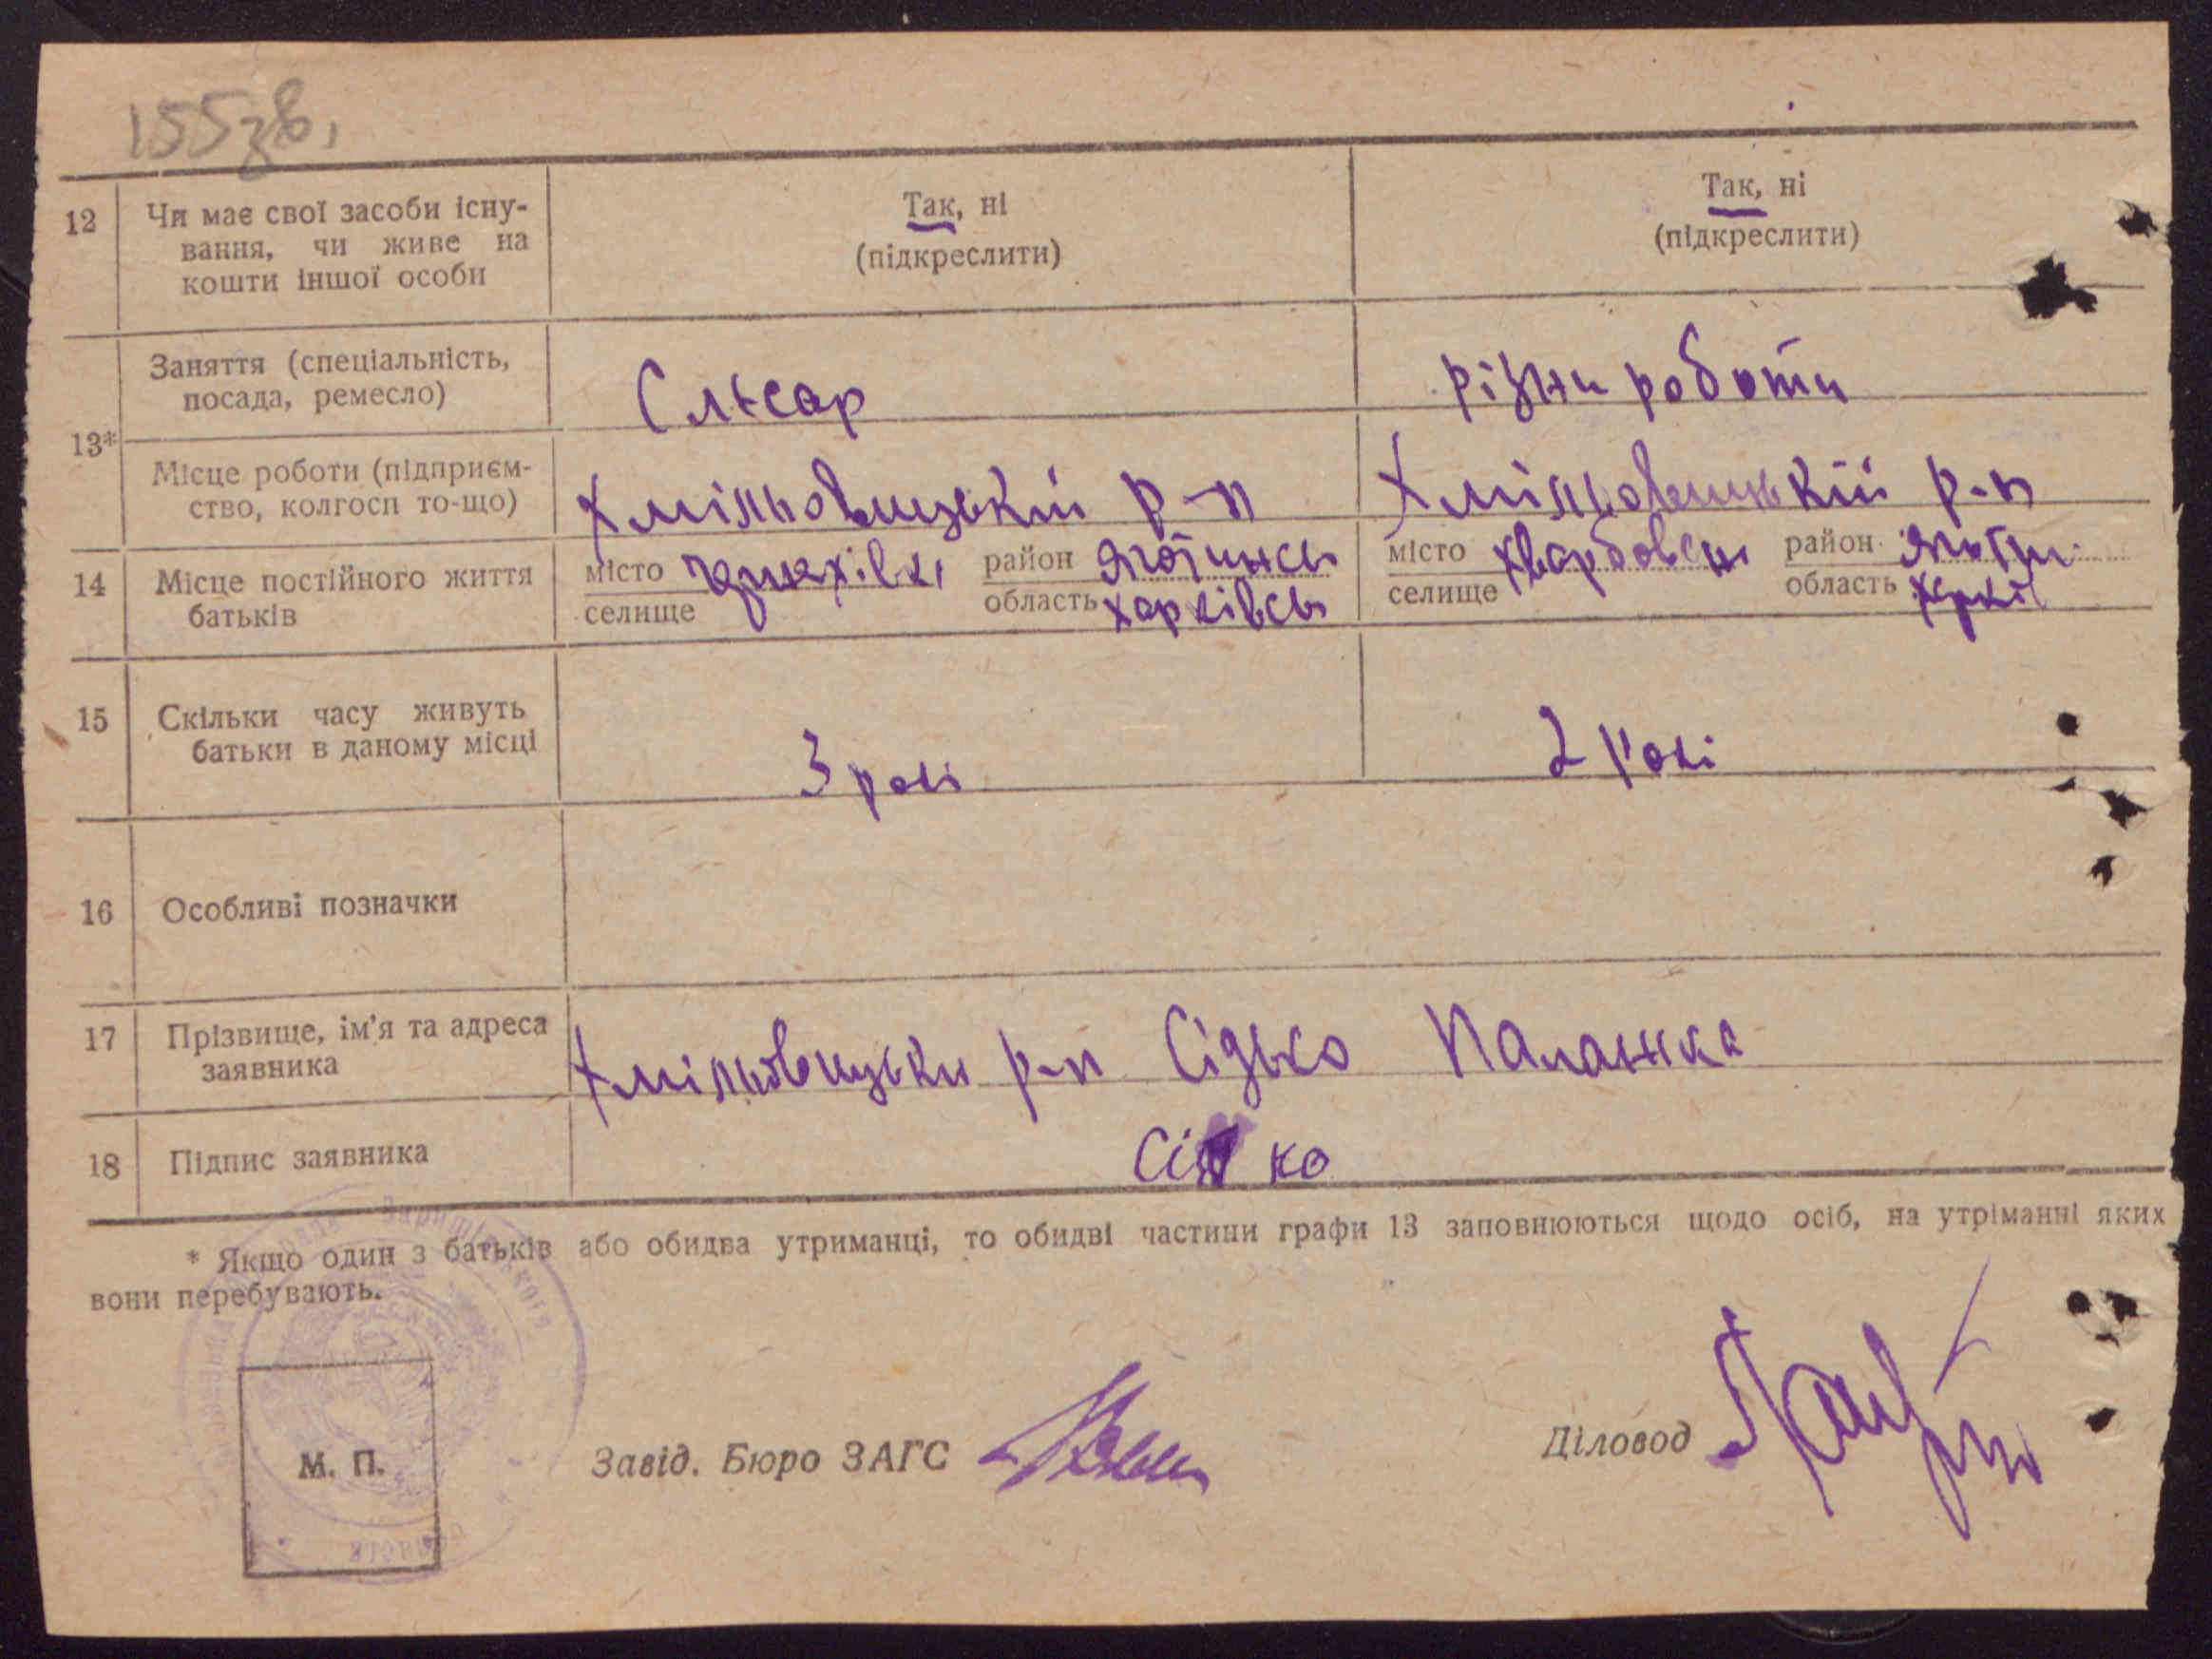 155зв.
12 Чи має свої засоби існу-
вання, чи живе на
кошти іншої особи
Так, ні
(підкреслити)
Так, ні
(підкреслити)
13* Заняття (спеціальність,
посада, ремесло)
Слесар
різни роботи
Місце роботи (підприєм-
ство, колгосп то-що)
Хмільовицькій р-п
Хмільовицькій р-п
14 Місце постійного життя
батьків
місто
селище
район
область Харківсь
місто
селище
район
область Харків
15 Скільки часу живуть
батьки в даному місці
3 рокі
2 рокі
16 Особливі позначки
17 Прізвище, ім'я та адреса
заявника
Хмільовицьки р-п Сідько Палажка
18 Підпис заявника
* Якщо один з батьків або обидва утриманці, то обидві частини графи 13 заповнюються щодо осіб, на утріманні яких
вони перебувають.
М. П.
Завід. Бюро ЗАГС
Діловод